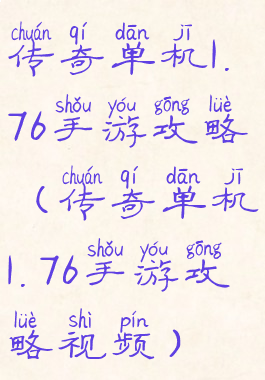 chuán qí dān jī
传奇单机1.
shǒu yóu gōng lüè
76手游攻略
chuán qí dān jī
(传奇单机
shǒu yóu gōng
1.76手游攻
lüè shì pín
略视频)